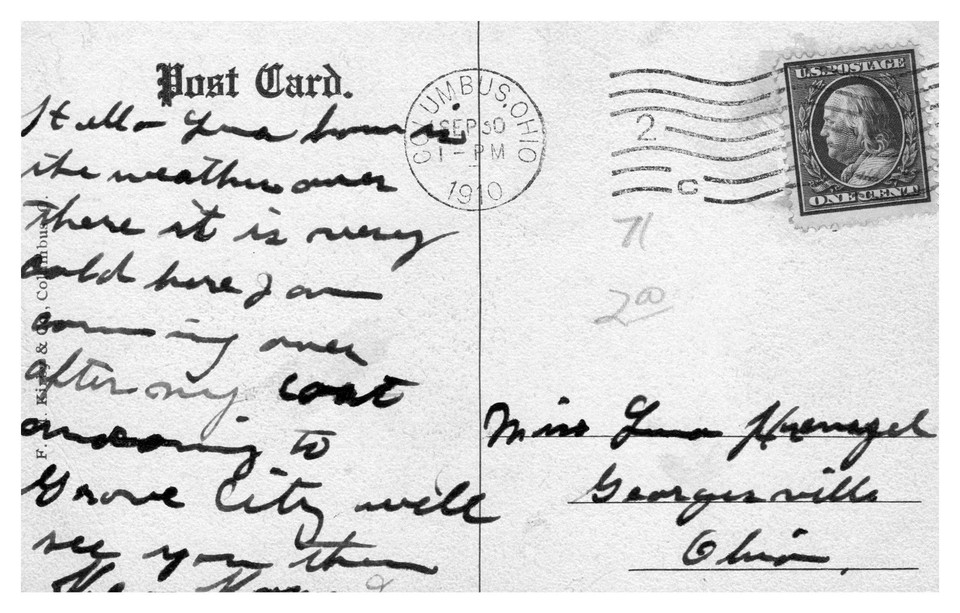 Post Card.
Hello Lena how is
the weather over
there it is very
cold here I am
coming over
after my coat
and going to
Grove City will
see you then
COLUMBUS, OHIO
SEP 30
1 - PM
1910
2
C
U.S. POSTAGE
ONE CENT
71
2 00
Miss Lena
Georgesville
Ohio.
& Co., Columbus, O.